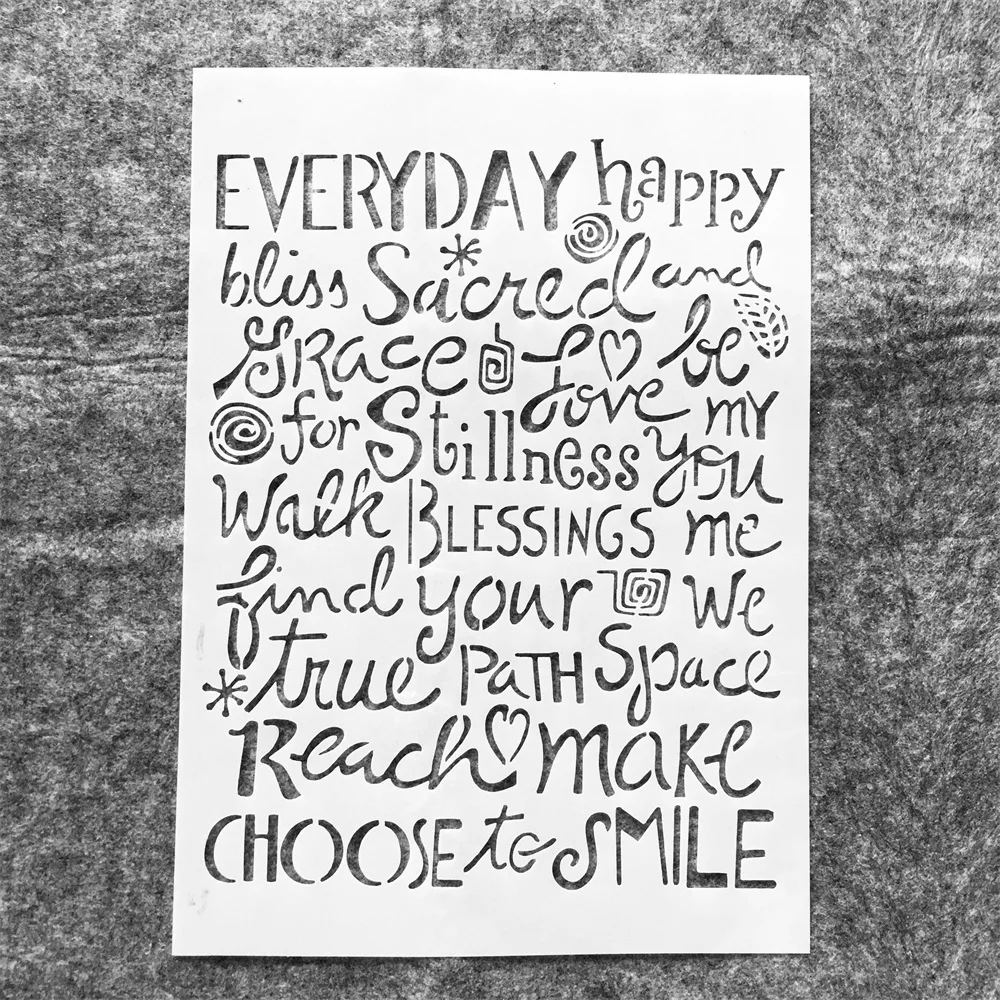 EVERYDAY happy
bliss Sacred and
Grace Love be
for Stillness my
you
Walk BLESSINGS me
find your we
true PaTH Space
Reach make
CHOOSE to SMILE